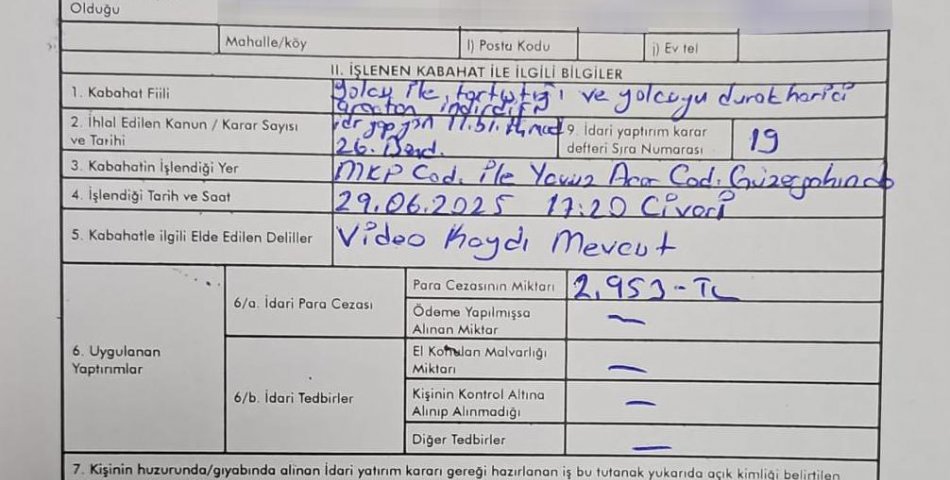 Olduğu
Mahalle/köy
l) Posta Kodu
j) Ev tel
II. İŞLENEN KABAHAT İLE İLGİLİ BİLGİLER
1. Kabahat Fiili
yolcu ile tartıştığı ve yolcuyu durak harici
araçtan indirdiği
2. İhlal Edilen Kanun / Karar Sayısı
ve Tarihi
11.51.
26. Bend.
9. İdari yaptırım karar
defteri Sıra Numarası
19
3. Kabahatin İşlendiği Yer
MKP Cad. ile Yavuz Acar Cad. Güzergahında
4. İşlendiği Tarih ve Saat
29.06.2025 17:20 Civarı
5. Kabahatle ilgili Elde Edilen Deliller
Video Kaydı Mevcut
6. Uygulanan
Yaptırımlar
6/a. İdari Para Cezası
Para Cezasının Miktarı
2.953-TL
Ödeme Yapılmışsa
Alınan Miktar
—
6/b. İdari Tedbirler
El Konulan Malvarlığı
Miktarı
—
Kişinin Kontrol Altına
Alınıp Alınmadığı
—
Diğer Tedbirler
—
7. Kişinin huzurunda/gıyabında alınan İdari yatırım kararı gereği hazırlanan iş bu tutanak yukarıda açık kimliği belirtilen